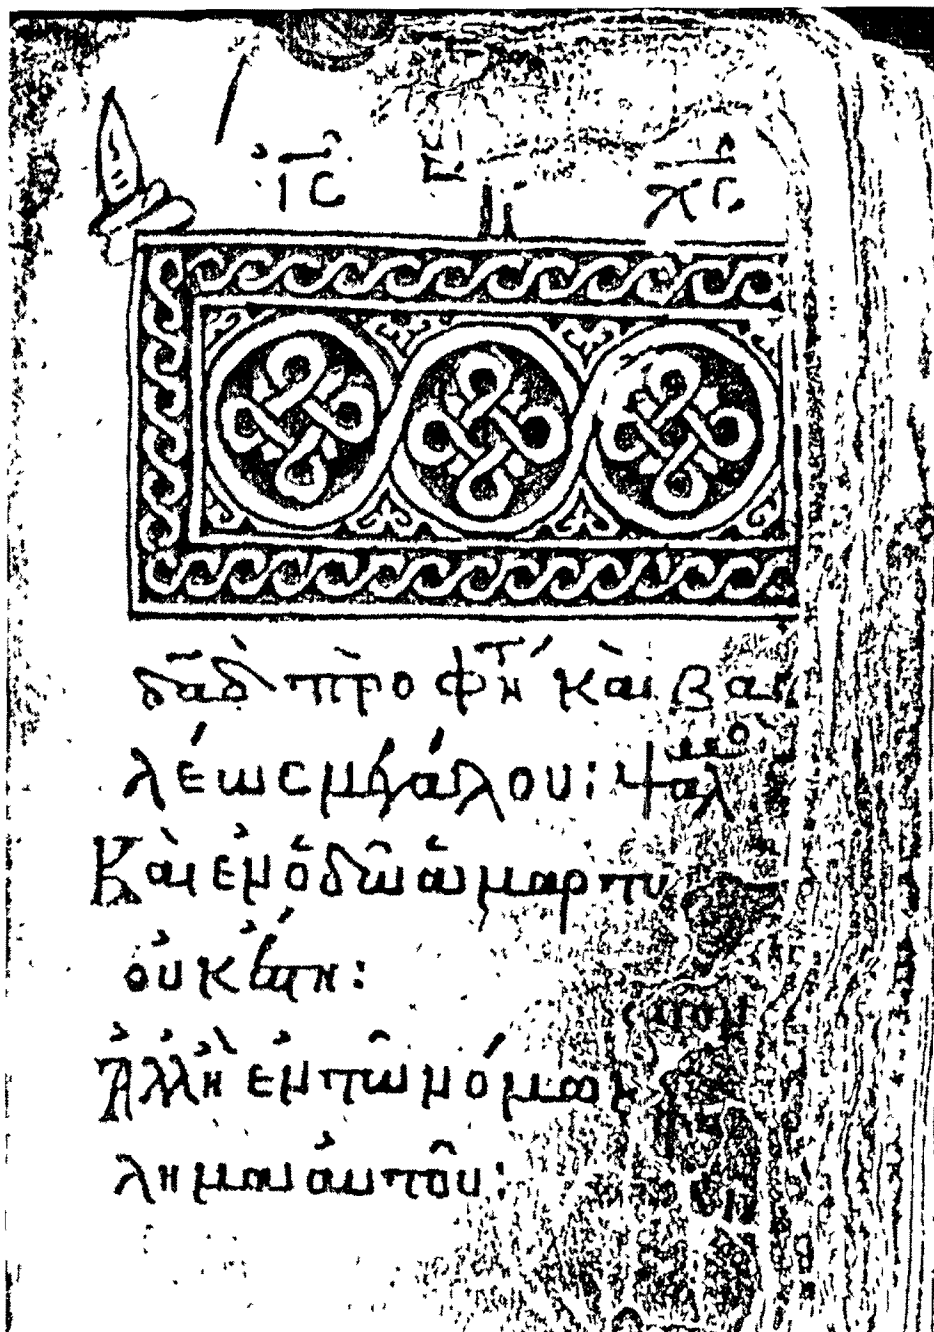 ΙC ΧC
δᾱδ προφητ καὶ βα
λέως μεγάλου: ψαλμο
Καὶ ἐν ὁδῶ ἁμαρτω
οὐκ ἔστη:
Ἀλλ' ἢ ἐν τῶ νόμω κ
λημα αὐτοῦ: